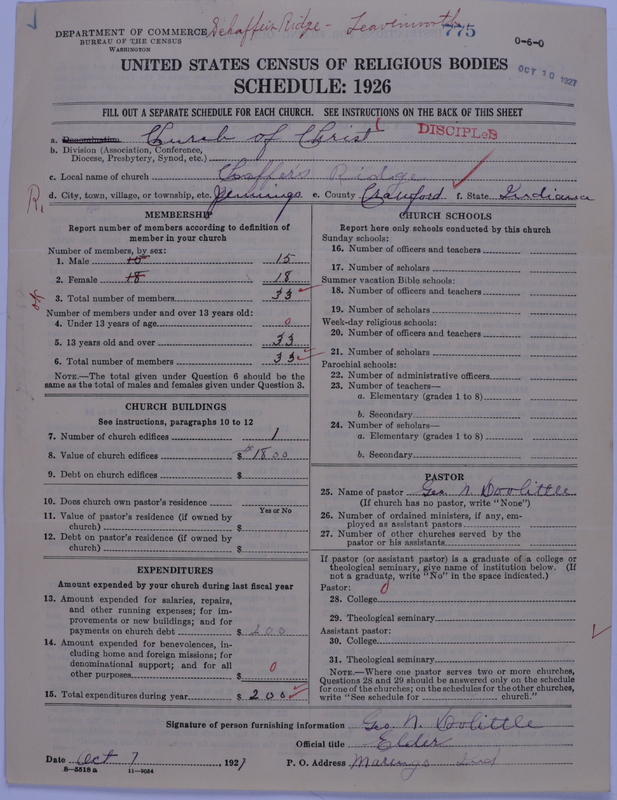 DEPARTMENT OF COMMERCE
BUREAU OF THE CENSUS
WASHINGTON
Schaffers Ridge - Leavenworth
775
0-6-0
OCT 10 1927
UNITED STATES CENSUS OF RELIGIOUS BODIES
SCHEDULE: 1926
FILL OUT A SEPARATE SCHEDULE FOR EACH CHURCH. SEE INSTRUCTIONS ON THE BACK OF THIS SHEET
a. Denomination Church of Christ
DISCIPLES
b. Division (Association, Conference,
Diocese, Presbytery, Synod, etc.)
c. Local name of church Ridge
d. City, town, village, or township, etc. Jennings e. County Crawford f. State Indiana
R.
MEMBERSHIP
Report number of members according to definition of
member in your church
Number of members, by sex:
1. Male 15 15
2. Female 18 18
3. Total number of members 33
ok
Number of members under and over 13 years old:
4. Under 13 years of age 0
5. 13 years old and over 33
6. Total number of members 33
NOTE.—The total given under Question 6 should be
same as the total of males and females given under Question 3.
CHURCH BUILDINGS
See instructions, paragraphs 10 to 12
7. Number of church edifices 1
8. Value of church edifices $ 1800
9. Debt on church edifices $
10. Does church own pastor's residence
Yes or No
11. Value of pastor's residence (if owned by
church) $
12. Debt on pastor's residence (if owned by
church) $
EXPENDITURES
Amount expended by your church during last fiscal year
13. Amount expended for salaries, repairs,
and other running expenses; for im-
provements or new buildings; and for
payments on church debt $ 200
14. Amount expended for benevolences, in-
cluding home and foreign missions; for
denominational support; and for all
other purposes $ 0
15. Total expenditures during year $ 200
CHURCH SCHOOLS
Report here only schools conducted by this church
Sunday schools:
16. Number of officers and teachers
17. Number of scholars
Summer vacation Bible schools:
18. Number of officers and teachers
19. Number of scholars
Week-day religious schools:
20. Number of officers and teachers
21. Number of scholars
Parochial schools:
22. Number of administrative officers
23. Number of teachers—
a. Elementary (grades 1 to 8)
b. Secondary
24. Number of scholars—
a. Elementary (grades 1 to 8)
b. Secondary
PASTOR
25. Name of pastor Geo. N. Doolittle
(If church has no pastor, write "None")
26. Number of ordained ministers, if any, em-
ployed as assistant pastors
27. Number of other churches served by the
pastor or his assistants
If pastor (or assistant pastor) is a graduate of a college or
theological seminary, give name of institution below. (If
not a graduate, write "No" in the space indicated.)
Pastor: 0
28. College
29. Theological seminary
Assistant pastor:
30. College
31. Theological seminary
NOTE.—Where one pastor serves two or more churches,
Questions 28 and 29 should be answered only on the schedule
for one of the churches; on the schedules for the other churches,
write "See schedule for church."
Signature of person furnishing information Geo. N. Doolittle
Official title Elder
Date Oct 7, 1927 P. O. Address Marengo Ind
8-5518 a 11-9034